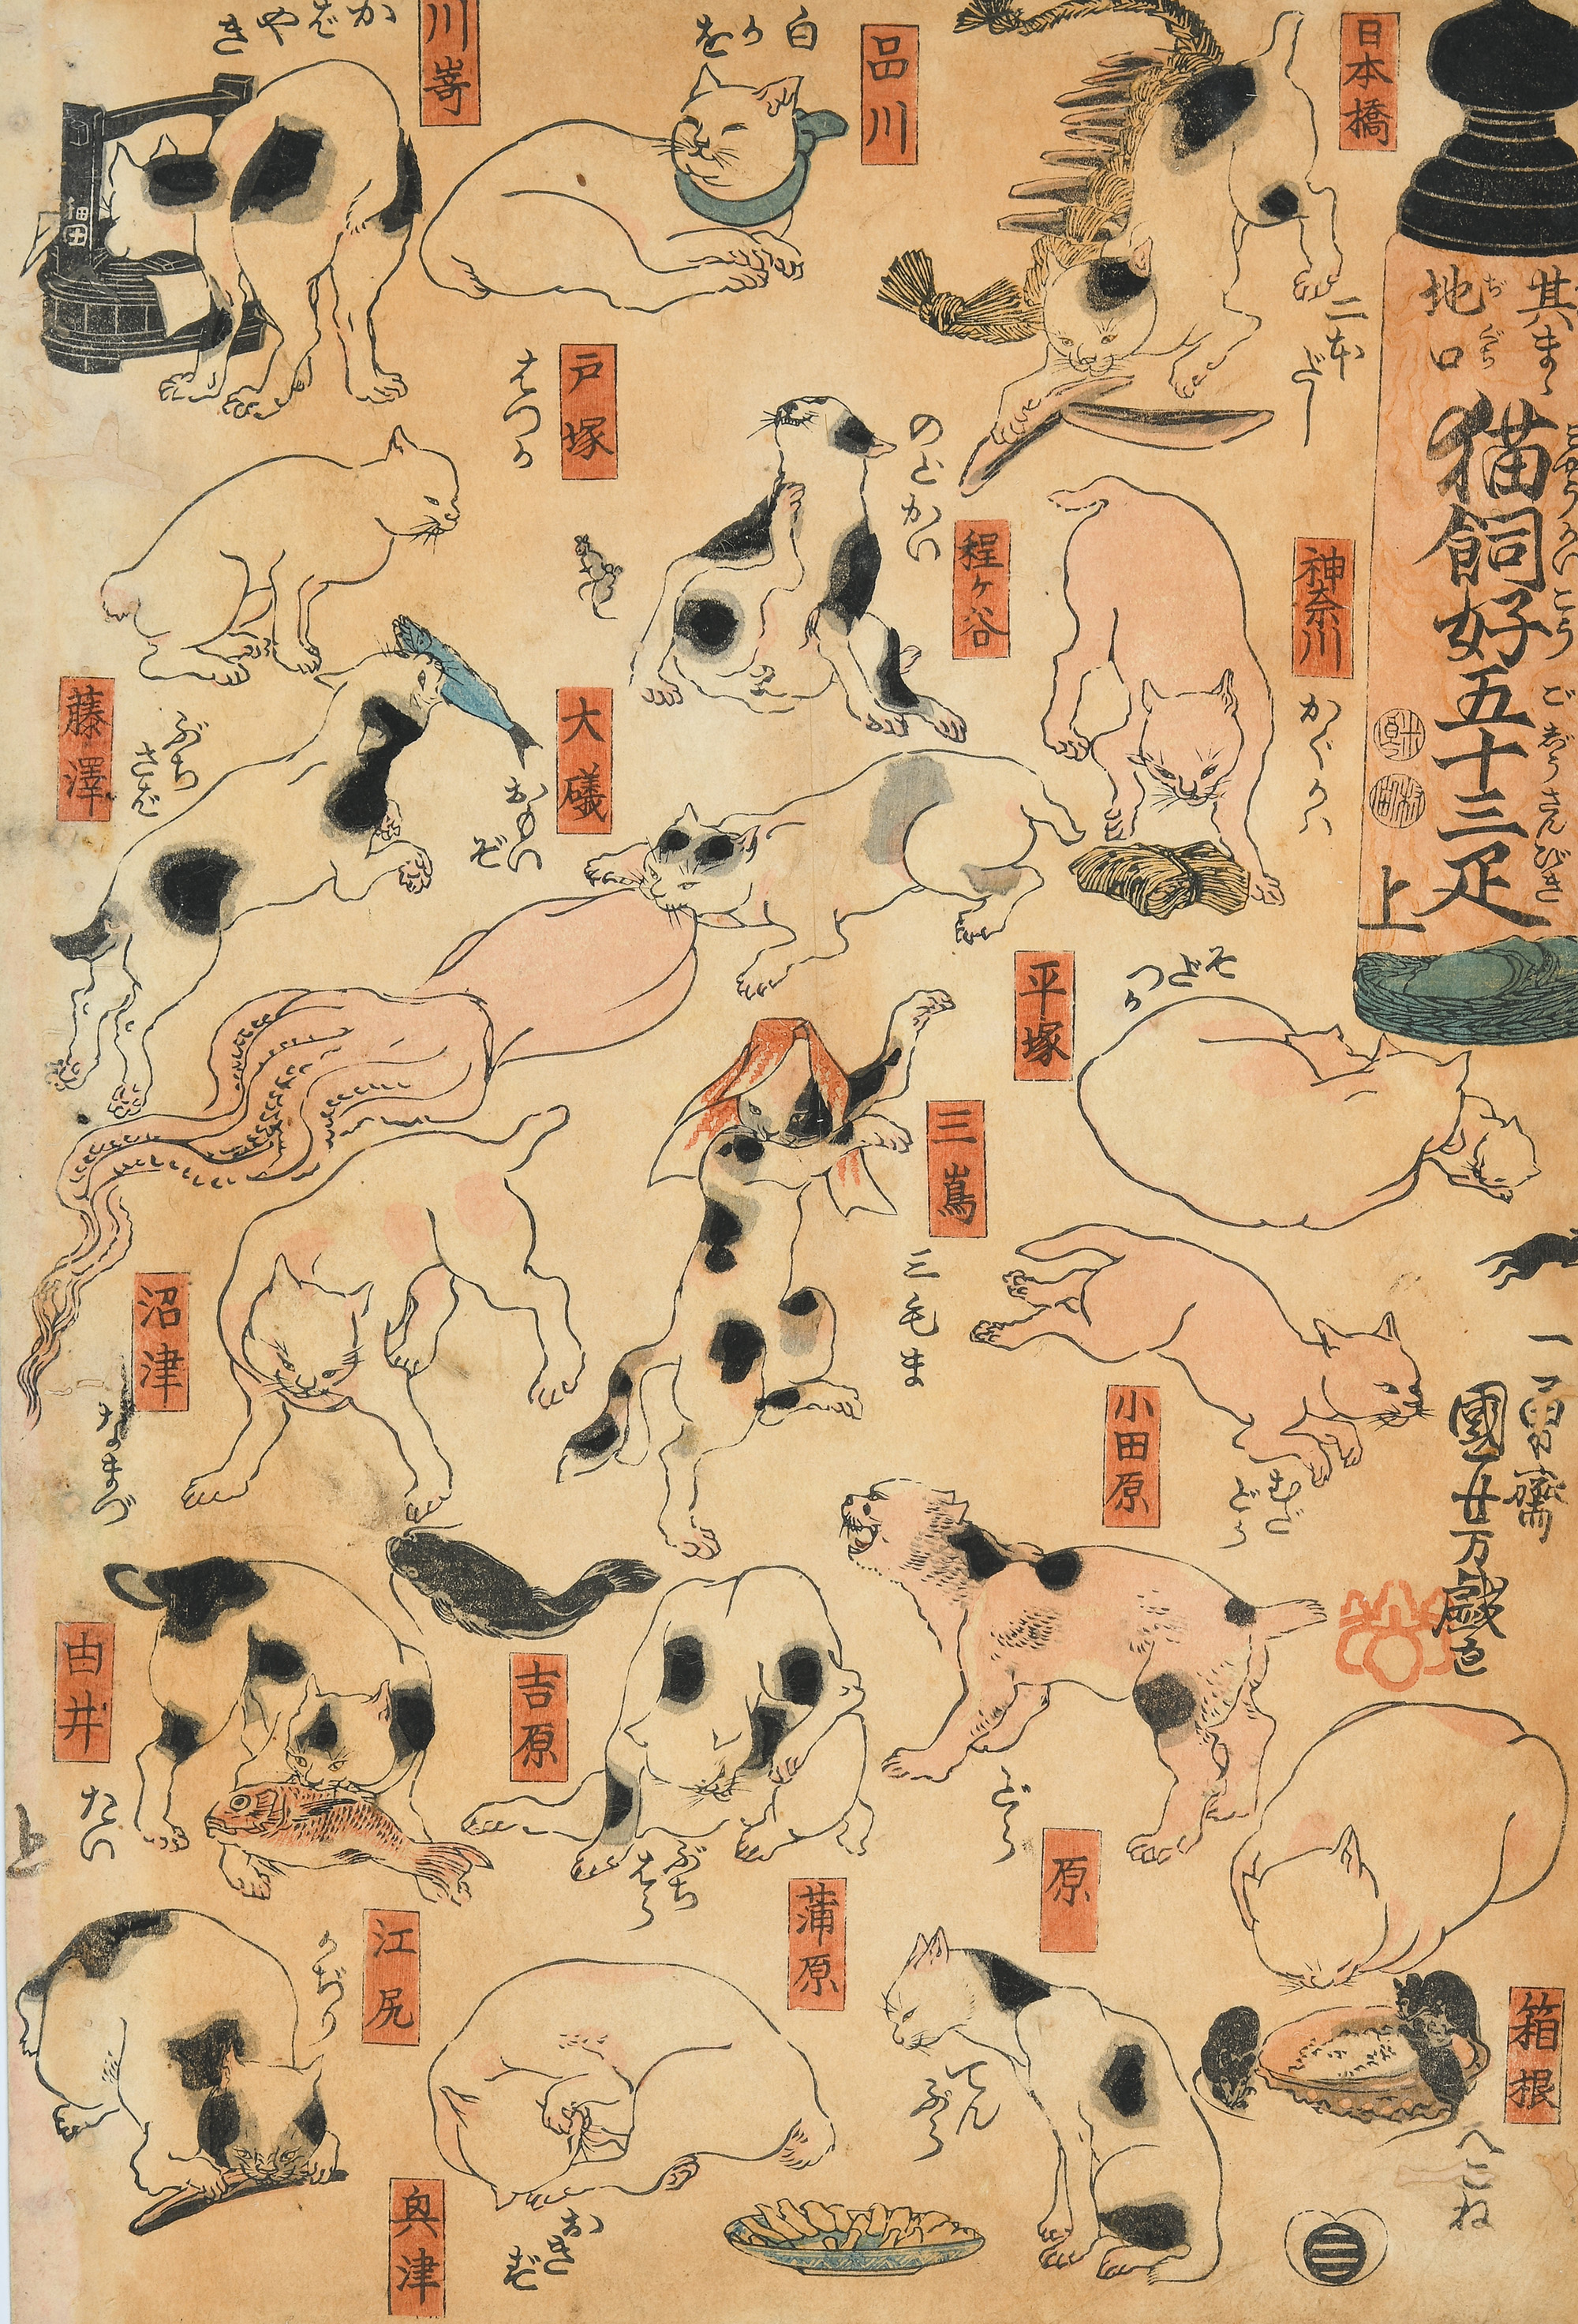 其まゝ
地口
ぢぐち
猫飼好五十三疋
ごぢうさんびき
上
日本橋
二本だし
品川
白かを
川嵜
かばやき
神奈川
かぐかは
程ヶ谷
のどかい
戸塚
はつか
平塚
そだつか
大礒
おもいぞ
藤澤
ぶちさば
小田原
むだどら
三嶌
三毛ま
沼津
なまづ
箱根
へこね
原
どら
吉原
ぶちはら
蒲原
てんぷら
由井
たい
奥津
おきず
江尻
かぢり
一勇齋
國芳戯画
上